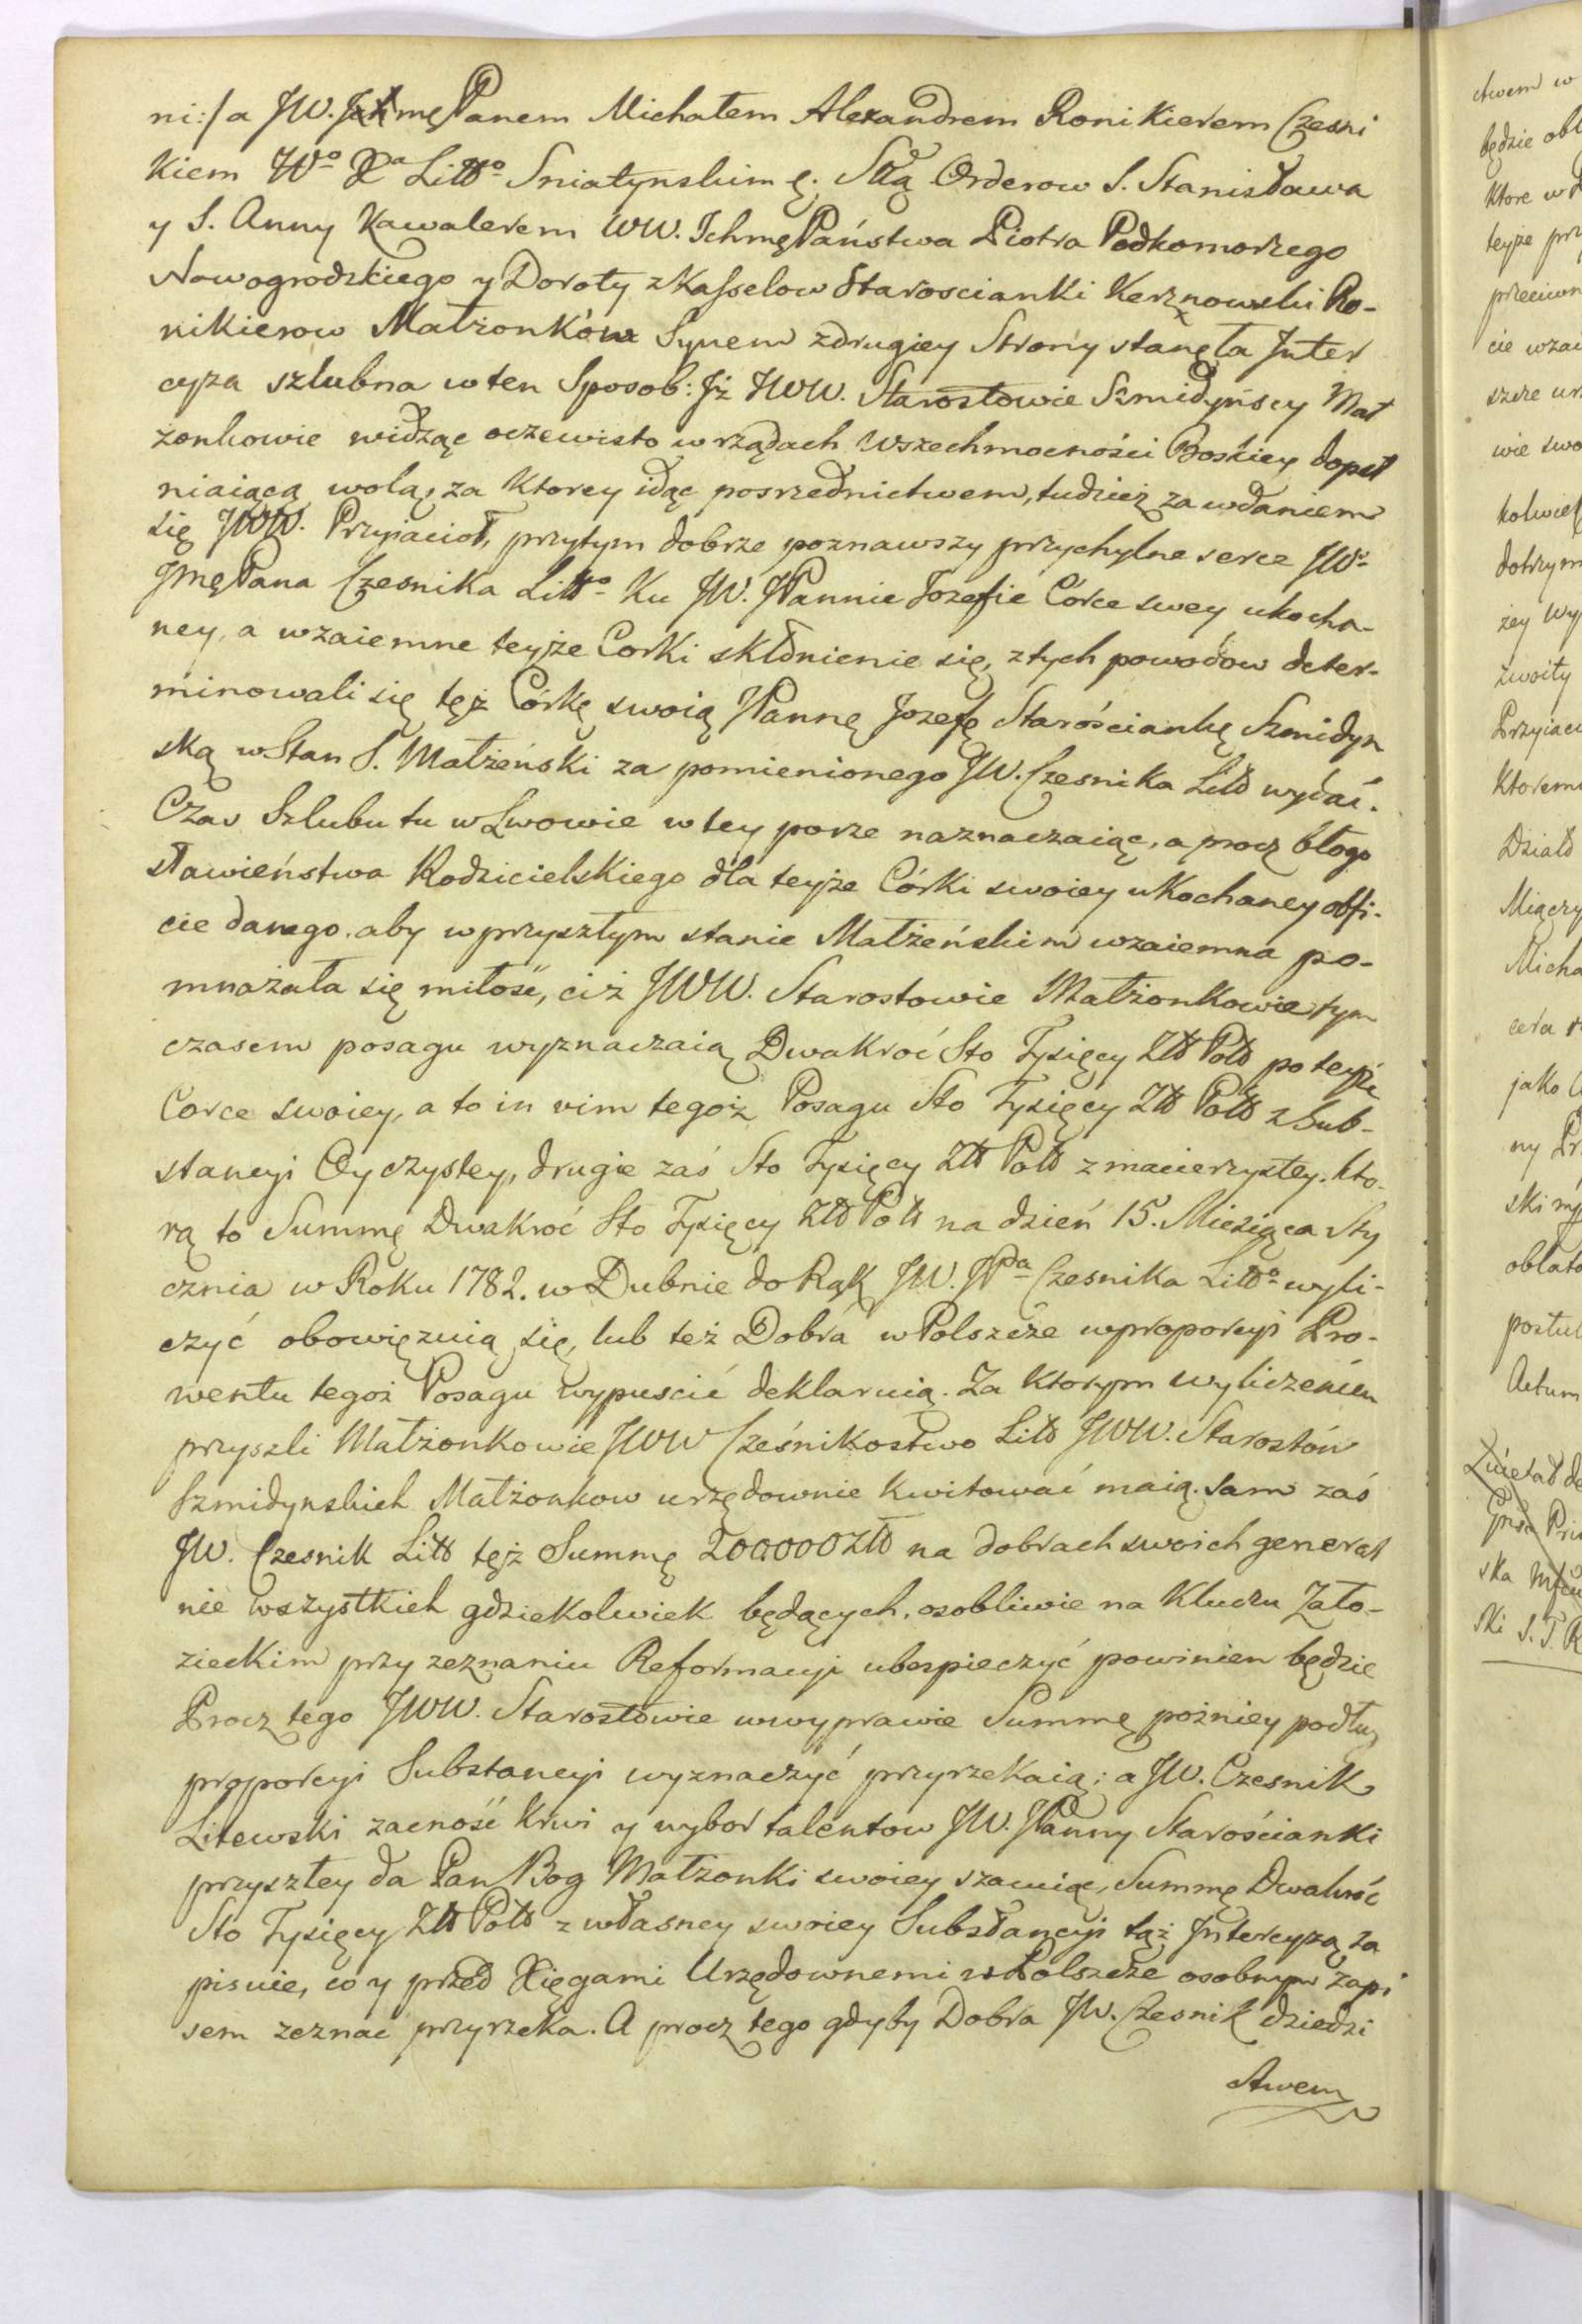 ni:/ a JW. JchmęPanem Michałem Alexandrem Ronikierem Czesni
kiem Wo Xa Littgo Sniatynskim &. Sttą Orderow S. Stanisława
y S. Anny Kawalerem WW. IchmęPaństwa Piotra Podkomorzego
Nowogrodzkiego y Doroty z Kasselow Staroscianki Kerznowski Ro-
nikierow Małżonków Synem z drugiey Strony stanęła Inter
cyza szlubna w ten Sposob: Iż JWW. Starostowie Szmidyńscy Mał
żonkowie widząc oczewisto w rządach Wszechmocności Boskiey dopeł
niaiącą wolą, za Ktorey idąc posrzednictwem, tudzież za wdaniem
się JWW. Przyiacioł, przytym dobrze poznawszy przychylne serce JWo
JmęPana Czesnika Littgo Ku JW. JPannie Jozefie Córce swey ukocha-
ney, a wzaiemne teyże Corki skłonienie się, z tych powodow deter-
minowali się tęż Córkę swoią JPannę Jozefę Starościankę Szmidyn
ską w Stan S. Małżeński za pomienionego JW. Czesnika Litt wydać.
Czas Szlubu tu w Lwowie w tey porze naznaczaiąc, a procz błogo
sławieństwa Rodzicielskiego dla teyże Córki swoiey ukochaney obfi-
cie danego. aby w przyszłym stanie Małżeńskim wzaiemna po-
mnażała się miłość, ciż JWW. Starostowie Małżonkowie tym
czasem posagu wyznaczaią Dwakroć Sto Tysięcy Złt Polt po teyże
Corce swoiey, a to in vim tegoż Posagu Sto Tysięcy Złt Polt z Sub-
stancyi Oyczystey, drugie zaś Sto Tysięcy Złt Polt z macierzystey. Kto-
rą to Summę Dwakroć Sto Tysięcy Złt Polt na dzień 15. Miesiąca Sty
cznia w Roku 1782. w Dubnie do Rąk JW. JPda Czesnika Littgo wyli-
czyć obowięzuią się, lub też Dobra w Polszcze w proporcyi Pro-
wentu tegoż Posagu wypuscić deklaruią. Za Ktorym wyliczeniem
przyszli Małżonkowie JWW Cześnikostwo Litt JWW. Starostów
Szmidynskich Małżonkow urzędownie Kwitować maią. Sam zaś
JW. Czesnik Litt tęż Summę 200000 Złt na dobrach swoich general
nie wszystkich gdziekolwiek będących, osobliwie na Kluczu Zało-
zieckim przy zeznaniu Reformacyi ubespieczyć powinien będzie
Procz tego JWW. Starostowie w wyprawie Summę pożniey podług
proporcyi Substancyi wyznaczyć przyrzekaią; a JW. Czesnik
Litewski zacność Krwi y wybor talentow JW. JPanny Starościanki
przyszłey da Pan Bog Małżonki swoiey szacuiąc, Summę Dwakroć
Sto Tysięcy Złt Polt z własney swoiey Substancyi tąż Intercyzą za
pisuie, co y przed Xięgami Urzędownemi w Polszcze osobnym zapi
sem zeznac przyrzeka. A procz tego gdyby Dobra JW. Czesnik dziedzi
ctwem